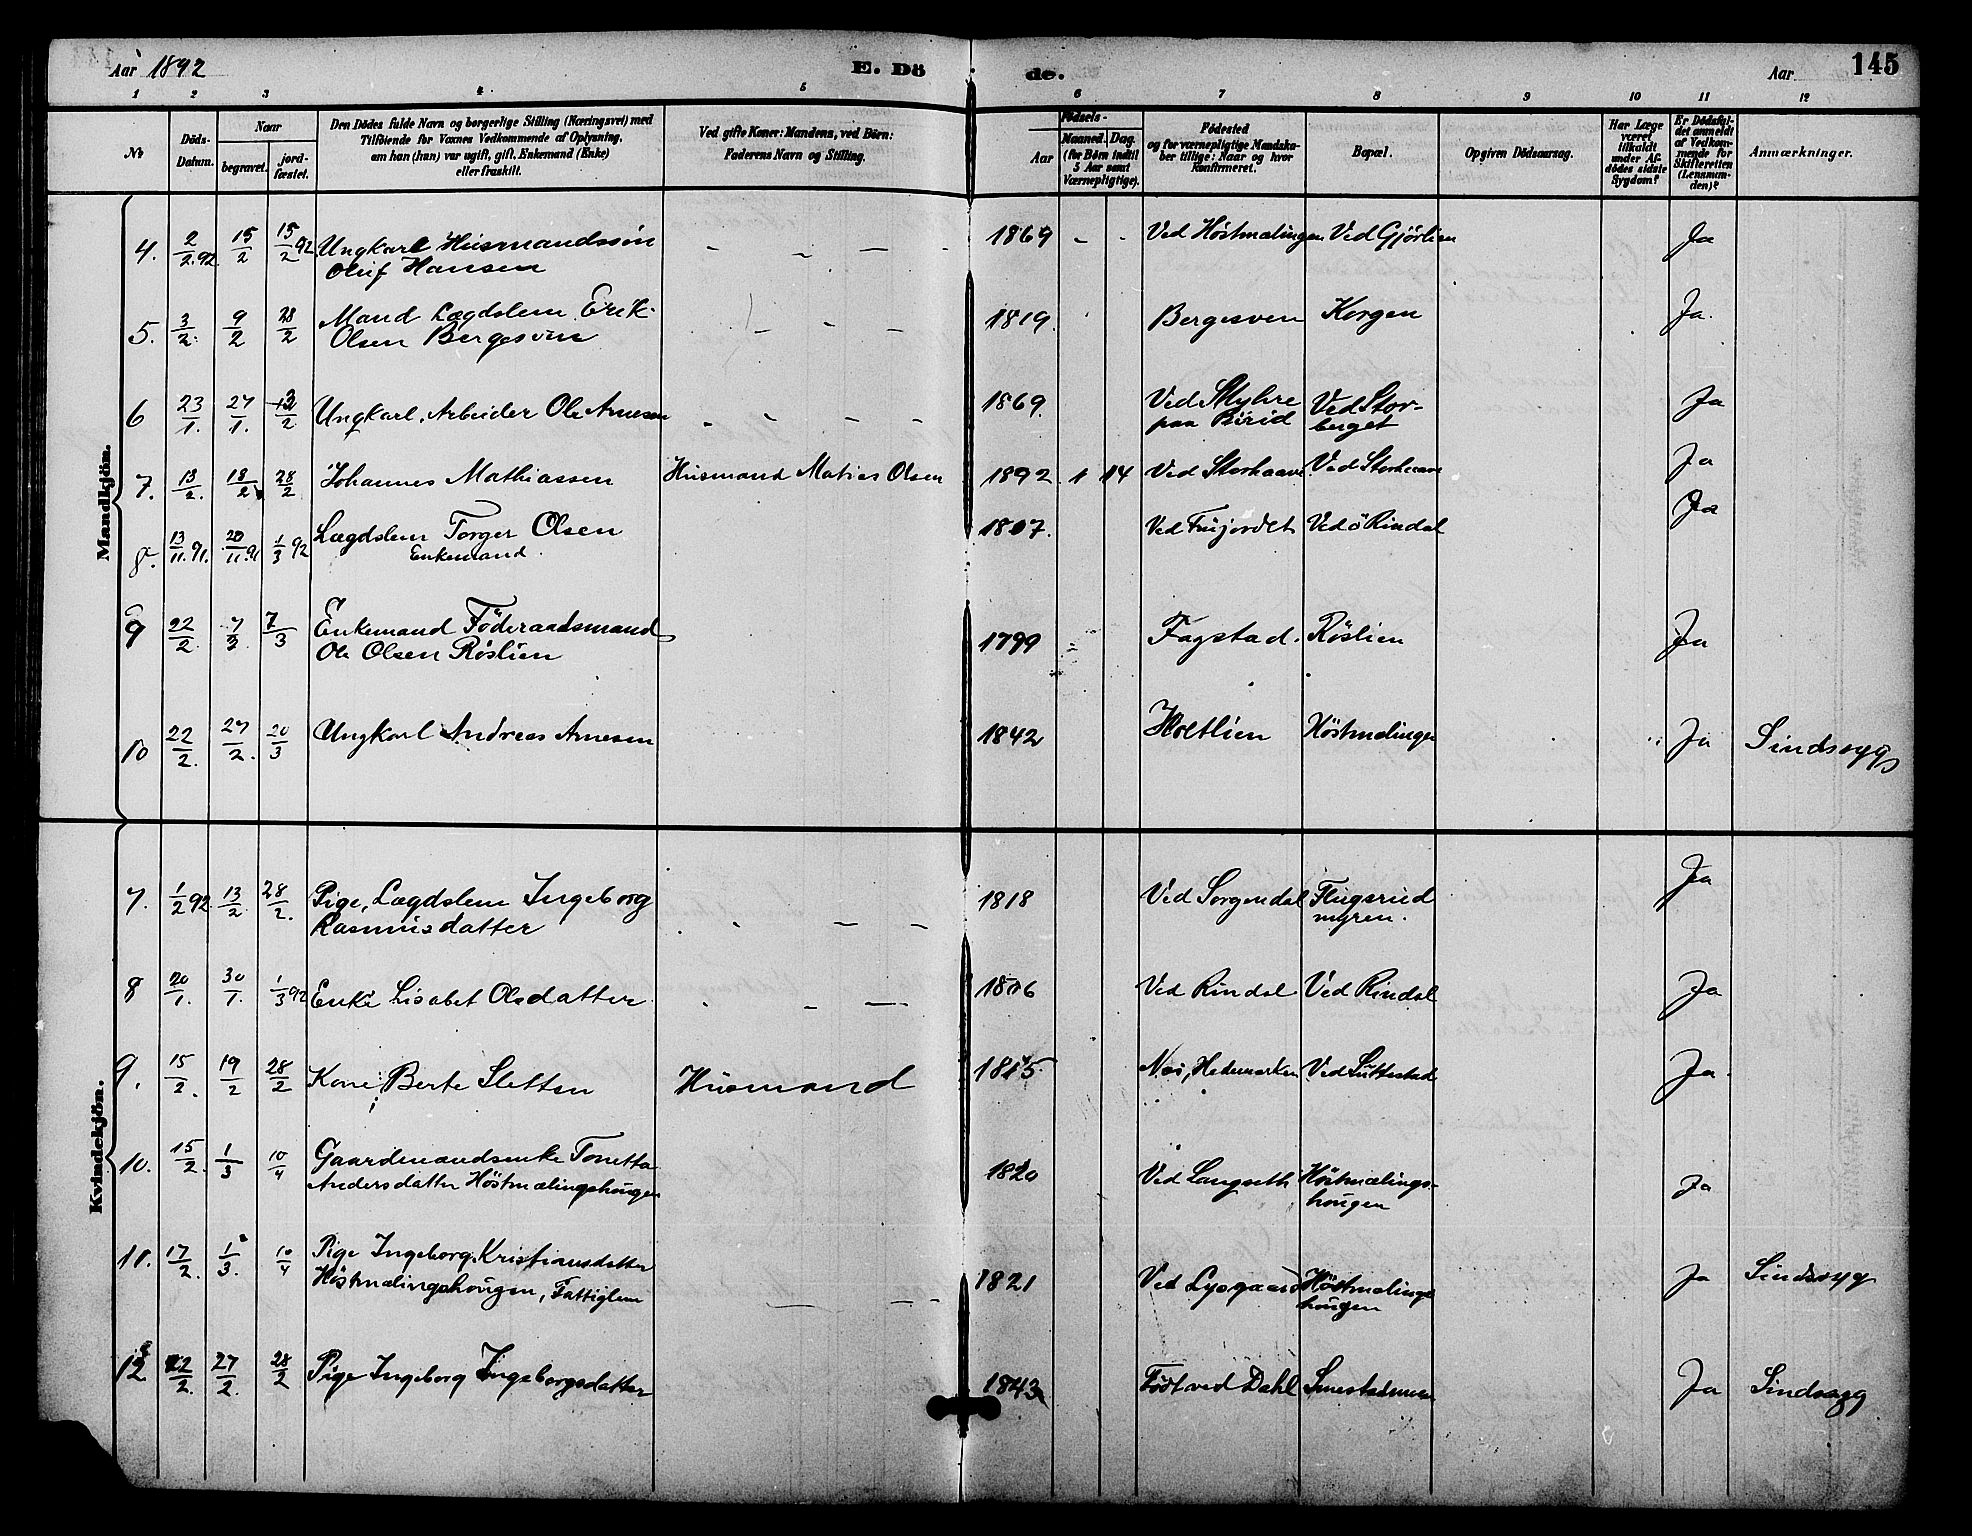 Aar 1892 E. Dö de. Aar 145
1 2 3 4 5 6 7 8 9 10 11 12
№ Döds-Datum. Naar begravet. jord-fæstet. Den Dödes fulde Navn og borgerlige Stilling (Næringsvei) med Tilföiende for Voxnes Vedkommende af Oplysning, om han (hun) var ugift, gift, Enkemand (Enke) eller fraskilt. Ved gifte Koner: Mandens, ved Börn: Faderens Navn og Stilling. Födsels- Aar Maaned. Dag. (for Börn indtil 5 Aar samt Værnepligtige). Födested og for værnepligtige Mandskaber tillige: Naar og hvor Konfirmeret. Bopæl. Opgiven Dödsaarsag. Har Læge været tilkaldt under Afdödes sidste Sygdom? Er Dödsfaldet anmeldt af Vedkommende for Skifteretten (Lensmanden)? Anmærkninger.
Mandkjön.
4. 2/2.92 15/2 15/2 92 Ungkarl Husmandssön - - - 1869 - - Ved Höstmælingen Ved Gjörlien Ja
Oluf Hansen
5. 3/2. 9/2 28/2 Mand Lægdslem Erik - - - 1819. Bergesven Korgen Ja.
Olsen Bergesven
6 23/1. 27/1. 2 Ungkarl, Arbeider Ole Arnesen - - - - 1869. Ved Ved Stor- Ja
paa Birid berget
7. 13/2. 18/2 28/2 Johannes Mathiassen Husmand Matias Olsen 1892 1 14 Ved Storhaave Ved Storhaave Ja
8. 13/11.91. 20/11.91 1/3 92 Lægdslem Torger Olsen 1807. Ved Ved ö Rindal Ja
Enkemand.
9 22/2. 7/3. 7/3 Enkemand Föderaadsmand 1799 Fagstad. Röslien Ja
Ole Olsen Röslien
10 22/2. 27/2. 20/3 Ungkarl Andreas Arnesen 1842 Holtlien Höstmælingen Ja Sindssyg
Kvindekjön.
7. 1/2 92 13/2. 28/2. Pige, Lægdslem Ingeborg 1818 Ved Sorgendal Flugsrud Ja
Rasmusdatter - - - - myren.
8 20/1. 30/1. 1/3 92 Enke Lisabet Olsdatter - - - 1806 Ved Rindal Ved Rindal Ja
9. 15/2. 19/2 28/2 Kone Berte Sletten Husmand 1815 Nes, Hedemarken Ved Luttestad Ja.
10. 15/2. 1/3 10/4 Gaardmandsenke Tonetta 1820 Ved Langseth Höstmælings- Ja
Andersdatter Höstmælingshougen hougen
11. 17/2. 1/3. 10/4 Pige Ingeborg Kristiansdatter 1821 Ved Lysgaard Höstmælings Ja Sindssyg
Höstmælingshougen, Fattiglem - - - hougen
12 22/2. 27/2. 28/2 Pige Ingeborg Ingeborgsdatter 1843 Födt ved Dahl Smestadmoen Ja Sindssyg